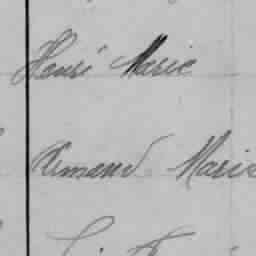 Henri Marie
Armand Marie